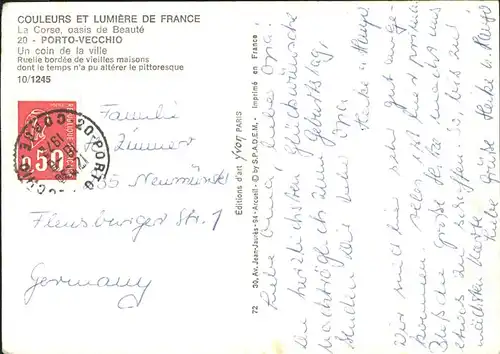 COULEURS ET LUMIÈRE DE FRANCE
La Corse, oasis de Beauté
20 - PORTO-VECCHIO
Un coin de la ville
Ruelle bordée de vieilles maisons
dont le temps n'a pu altérer le pittoresque
10/1245
0,50
20-PORTO
CORSE
Familie
Zimmer
Neumünster
Flensburger Str. 1
Germany
Editions d'art yvon PARIS
72 30, Av. Jean-Jaurès-94-Arcueil - © by S.P.A.D.E.M. - Imprimé en France
Liebe Oma, lieber Opa!
Die herzlichsten Glückwünsche
nachträglich zum Geburtstag,
senden Dir lieber Opa
Heike u. Hauge
Wir sind hier sehr gut ange-
kommen. Alles ist
große Hitze macht uns
etwas zu schaffen. So, bis zur
nächsten Karte
liebe Grüße Heike u.